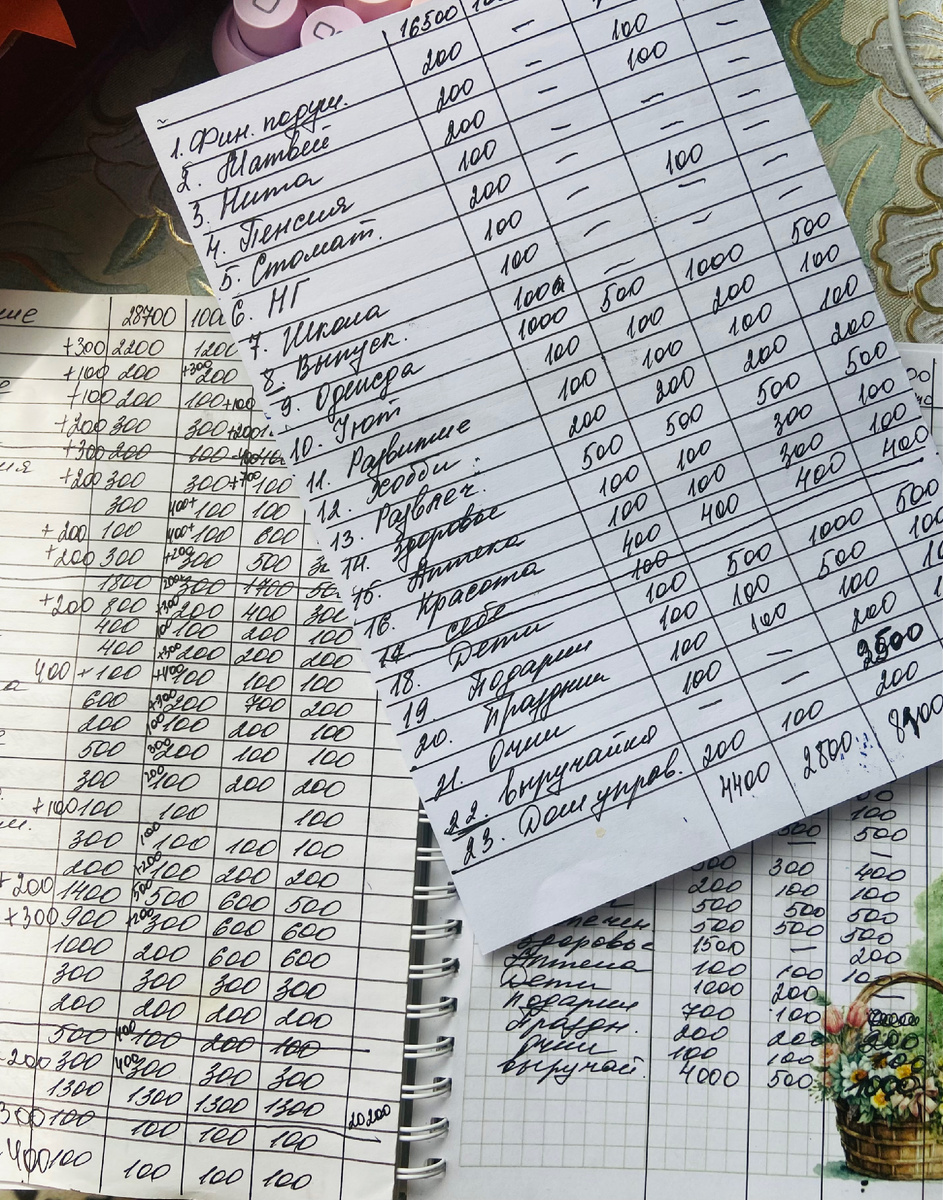 16500
1. Фин. подуш. 200 — 100 —
2. Матвей 200 — 100 —
3. Никта 200 — — —
4. Пенсия 100 — — —
5. Стомат. 200 — 100 —
6. НГ 100 — — —
7. Школа 100 — — 500
8. Выпуск. 1000 500 1000 100
9. Одежда 1000 100 200 100
10. Уют 100 100 100 200
11. Развитие 100 200 200 500
12. Хобби 200 500 500 100
13. Развлеч. 500 100 300 100
14. Здоровье 100 100 400 400
15. Аптека 100 400
16. Красота 400
17 себе 100 500 1000 500
18. Дети 100 100 500 100
19. Подарки 100 100 100
20. Праздники 100 — 200
21. Очки 100 — 3500
22. Выручайка — 100 200
23. Дом управ. 200
4400 2800 8900
28700
+300 2200 1200
+100 200 +300 200
+100 200 100 +100
+200 300 300
+300 200 100
+200 300 300 100
300 400+ 100 100
+200 100 400+ 100 600
+200 300 +200 300 500
1800 300 1700
+200 800 200 400 300
400 100 200 100
400 +300 200 200 200
400 + 100 100 100
600 +300 200 700 200
200 100 100 200 100
500 300 200 100 100
300 200 100 200 200
+100 100 100 100
300 100 100 100 100
200 +200 100 200 200
+200 1400 500 500 600 500
+300 900 +200 300 600 600
1000 200 600 600
300 300 300 300
200 200 200 200
500 400 100 200 100
200 300 400 300 300 300
1300 1300 1300 1300 20200
300 100 100 100 100
400 100 100 100 100
500
300 400
200 100 100
500 500 500
Здоровье 1500 — 200
Аптека 100 100
Дети 1000 200 —
Подарки 700 100
Праздн. 200 200 200
Очки 100 100 100
Выручай. 4000 500 1000